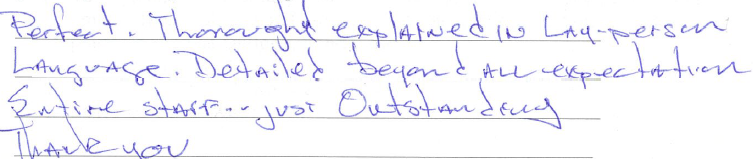 Perfect. Thorought explained in Lay-person
Language. Detailed beyond all expectation
Entire staff... just Outstanding
Thank you